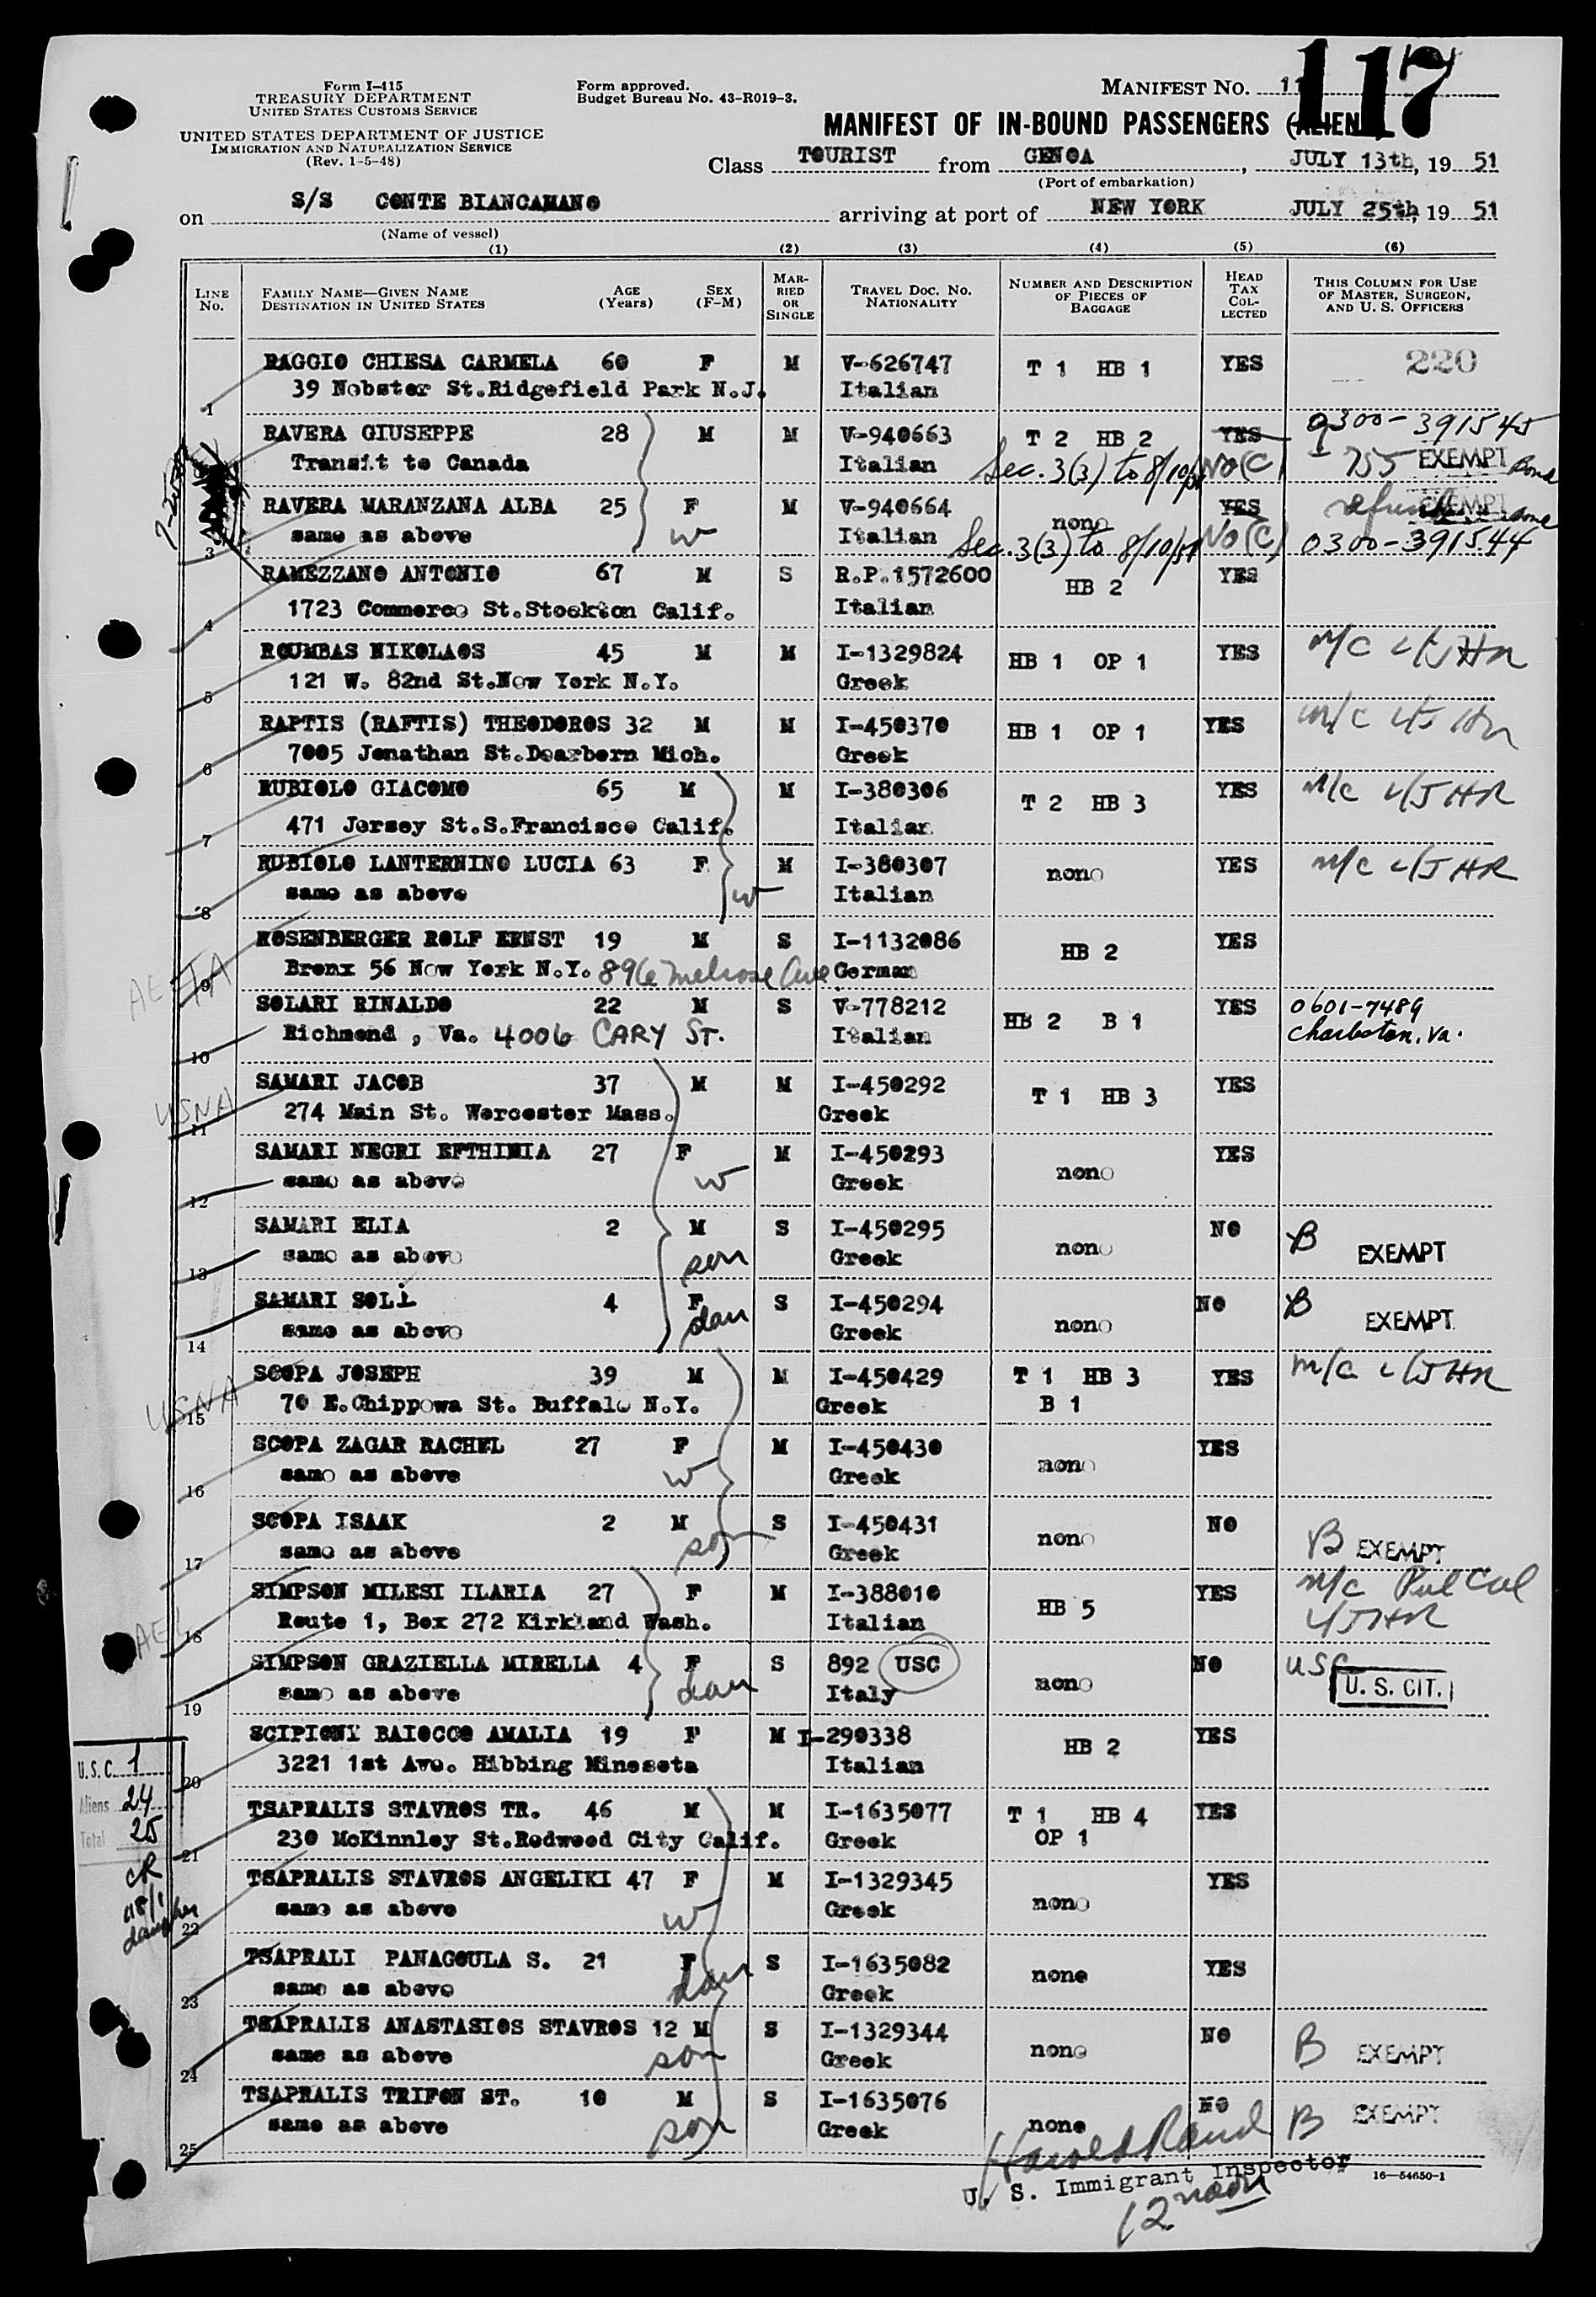 Form I-415
TREASURY DEPARTMENT
UNITED STATES CUSTOMS SERVICE
UNITED STATES DEPARTMENT OF JUSTICE
IMMIGRATION AND NATURALIZATION SERVICE
(Rev. 1-5-48)
Form approved.
Budget Bureau No. 43-R019-3.
MANIFEST NO. 117
MANIFEST OF IN-BOUND PASSENGERS (ALIEN)
Class TOURIST from GENOA, JULY 13th, 19 51
(Port of embarkation)
on S/S CONTE BIANCAMANO arriving at port of NEW YORK JULY 25th, 19 51
(Name of vessel)
(1) (2) (3) (4) (5) (6)
LINE NO. FAMILY NAME—GIVEN NAME DESTINATION IN UNITED STATES AGE (Years) SEX (F-M) MARRIED OR SINGLE TRAVEL DOC. NO. NATIONALITY NUMBER AND DESCRIPTION OF PIECES OF BAGGAGE HEAD TAX COLLECTED THIS COLUMN FOR USE OF MASTER, SURGEON, AND U. S. OFFICERS
RAGGIO CHIESA CARMELA 60 F M V-626747 T 1 HB 1 YES 220
1 39 Nobster St.Ridgefield Park N.J. Italian
RAVERA GIUSEPPE 28 M M V-940663 T 2 HB 2 YES 0300-391545
Transit to Canada Italian Sec. 3(3) to 8/10/51 NO (C) 755 EXEMPT Bond
RAVERA MARANZANA ALBA 25 F M V-940664 none YES refund EXEMPT
3 same as above w Italian Sec. 3(3) to 8/10/51 NO (C) 0300-391544
RAMEZZANO ANTONIO 67 M S R.P.1572600 HB 2 YES
4 1723 Commerce St.Stockton Calif. Italian
ROUMBAS NIKOLAOS 45 M M I-1329824 HB 1 OP 1 YES M/C L/J HR
5 121 W. 82nd St.New York N.Y. Greek
RAPTIS (RAFTIS) THEODOROS 32 M M I-450370 HB 1 OP 1 YES M/C L/J HR
6 7005 Jonathan St.Dearborn Mich. Greek
RUBIOLO GIACOMO 65 M M I-380306 T 2 HB 3 YES M/C L/J HR
7 471 Jersey St.S.Francisco Calif. Italian
RUBIOLO LANTERNINO LUCIA 63 F M I-380307 none YES M/C L/J HR
8 same as above w Italian
ROSENBERGER ROLF ERNST 19 M S I-1132086 HB 2 YES
9 Bronx 56 New York N.Y. 896 Melrose Ave German
SOLARI RINALDO 22 M S V-778212 HB 2 B 1 YES 0601-7489
10 Richmond , Va. 4006 CARY ST. Italian Charleston, Va.
USNA SAMARI JACOB 37 M M I-450292 T 1 HB 3 YES
11 274 Main St. Worcester Mass. Greek
SAMARI NEGRI EFTHIMIA 27 F M I-450293 none YES
12 same as above w Greek
SAMARI ELIA 2 M S I-450295 none NO B EXEMPT
13 same as above son Greek
SAMARI SOLI 4 F S I-450294 none NO B EXEMPT
14 same as above dau Greek
SCOPA JOSEPH 39 M M I-450429 T 1 HB 3 YES M/C L/J HR
USNA 15 70 E.Chippowa St. Buffalo N.Y. Greek B 1
SCOPA ZAGAR RACHEL 27 F M I-450430 none YES
16 same as above w Greek
SCOPA ISAAK 2 M S I-450431 none NO B EXEMPT
17 same as above son Greek
SIMPSON MILESI ILARIA 27 F M I-388010 HB 5 YES M/C
18 Route 1, Box 272 Kirkland Wash. Italian L/J HR
SIMPSON GRAZIELLA MIRELLA 4 F S 892 USC none NO USC U. S. CIT.
19 same as above dau Italy
SCIPIONI BAIOCCO AMALIA 19 F M I-290338 HB 2 YES
20 3221 1st Ave. Hibbing Minesota Italian
TSAPRALIS STAVROS TR. 46 M M I-1635077 T 1 HB 4 YES
21 230 McKinnley St.Redwood City Calif. Greek OP 1
TSAPRALIS STAVROS ANGELIKI 47 F M I-1329345 none YES
22 same as above w Greek
TSAPRALI PANAGOULA S. 21 F S I-1635082 none YES
23 same as above dau Greek
TSAPRALIS ANASTASIOS STAVROS 12 M S I-1329344 none NO B EXEMPT
24 same as above son Greek
TSAPRALIS TRIFON ST. 10 M S I-1635076 none NO B EXEMPT
25 same as above son Greek
U.S.C. 1
Aliens 24
Total 25
CR
Harold Rand
U. S. Immigrant Inspector
12 noon
16—54650-1